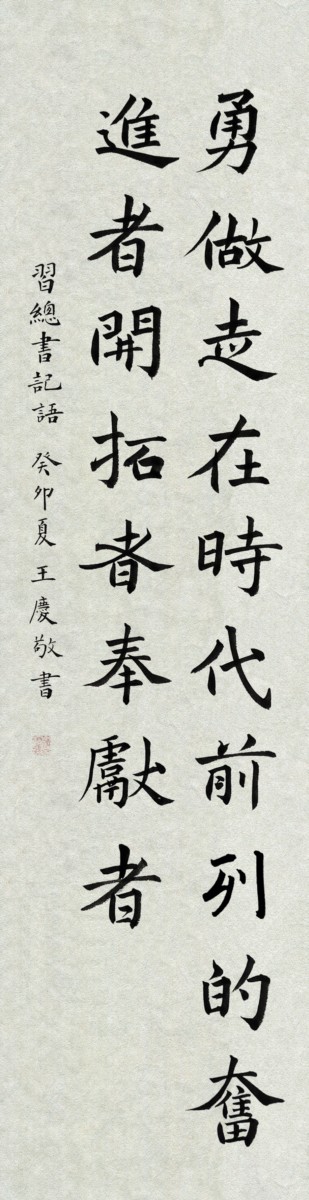 勇做走在時代前列的奮
進者開拓者奉獻者
習總書記語 癸卯夏 王慶敬書